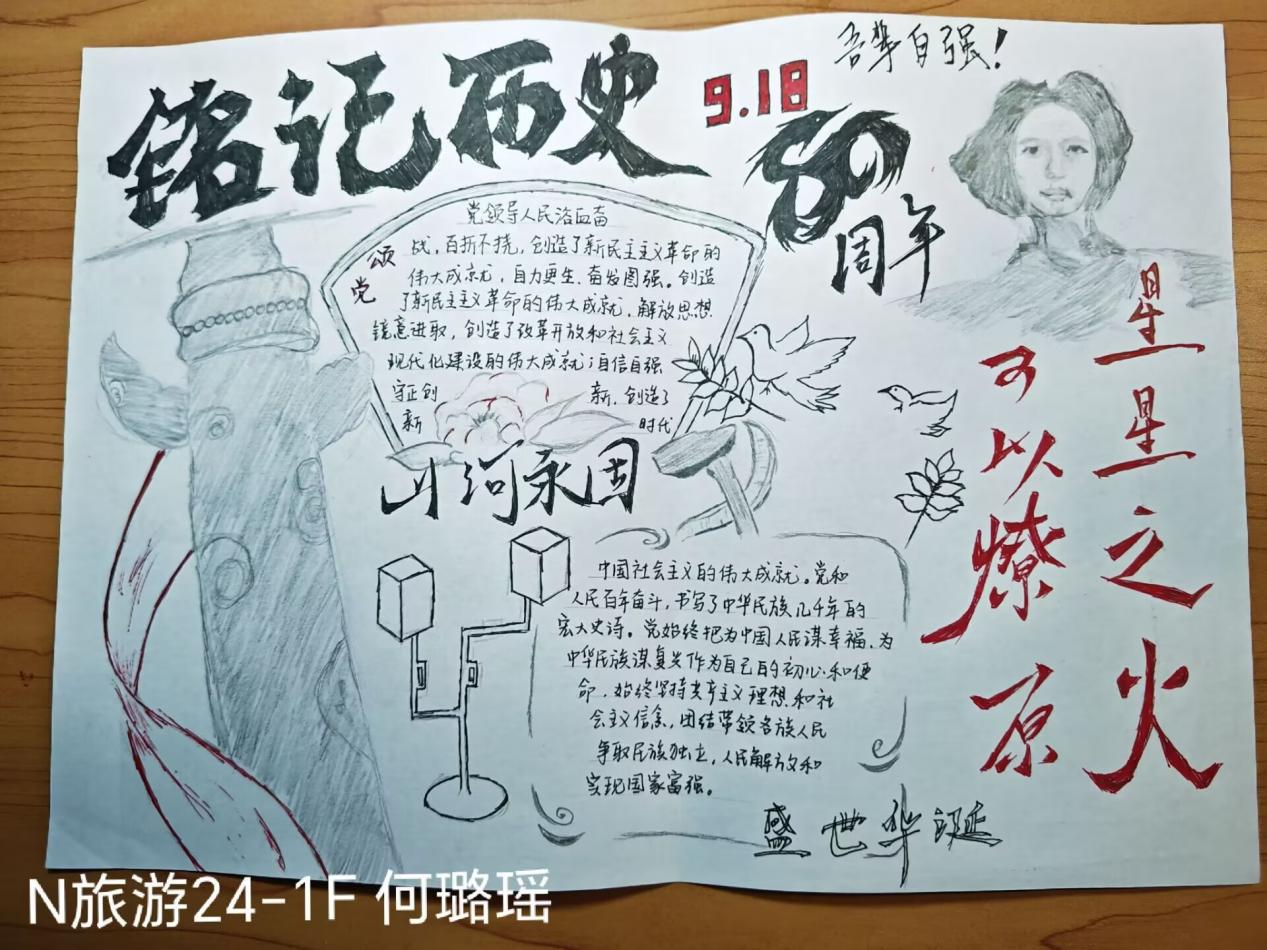 铭记历史
9.18
80
周年
吾辈自强!
颂党
党领导人民浴血奋
战，百折不挠，创造了新民主主义革命的
伟大成就，自力更生、奋发图强。创造
了新民主主义革命的伟大成就，解放思想
锐意进取，创造了改革开放和社会主义
现代化建设的伟大成就；自信自强
守正创
新，创造了
新
时代
山河永固
中国社会主义的伟大成就。党和
人民百年奋斗，书写了中华民族几千年的
宏大史诗。党始终把为中国人民谋幸福、为
中华民族谋复兴作为自己的初心和使
命，始终坚持共产主义理想和社
会主义信念，团结带领各族人民
争取民族独立，人民解放和
实现国家富强。
星星之火
可以燎原
盛世华诞
N旅游24-1F 何璐瑶